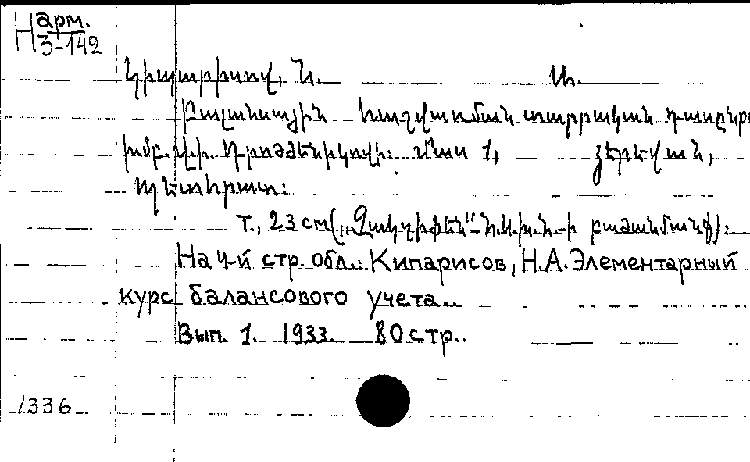 Нарм.
3-142
Կիպարիսով, Ն. Ա.
Բալանսային հաշվառման տարրական դասընթ
խմբ. Մաս 1, Յերեվան,
Պետհրատ:
т., 23 см.
На 4-й стр. обл.: Кипарисов, Н.А. Элементарный
курс балансового учета..
Вып. 1. 1933. 80 стр..
1336